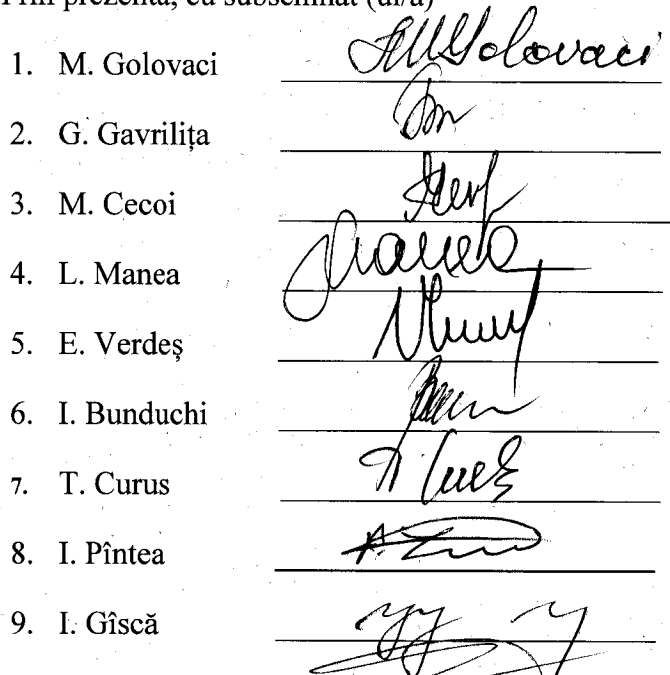 Prin prezenta, eu subsemnat (ul/a)
1. M. Golovaci Golovaci
2. G. Gavrilița
3. M. Cecoi
4. L. Manea Manea
5. E. Verdeș
6. I. Bunduchi
7. T. Curus
8. I. Pîntea
9. I. Gîscă